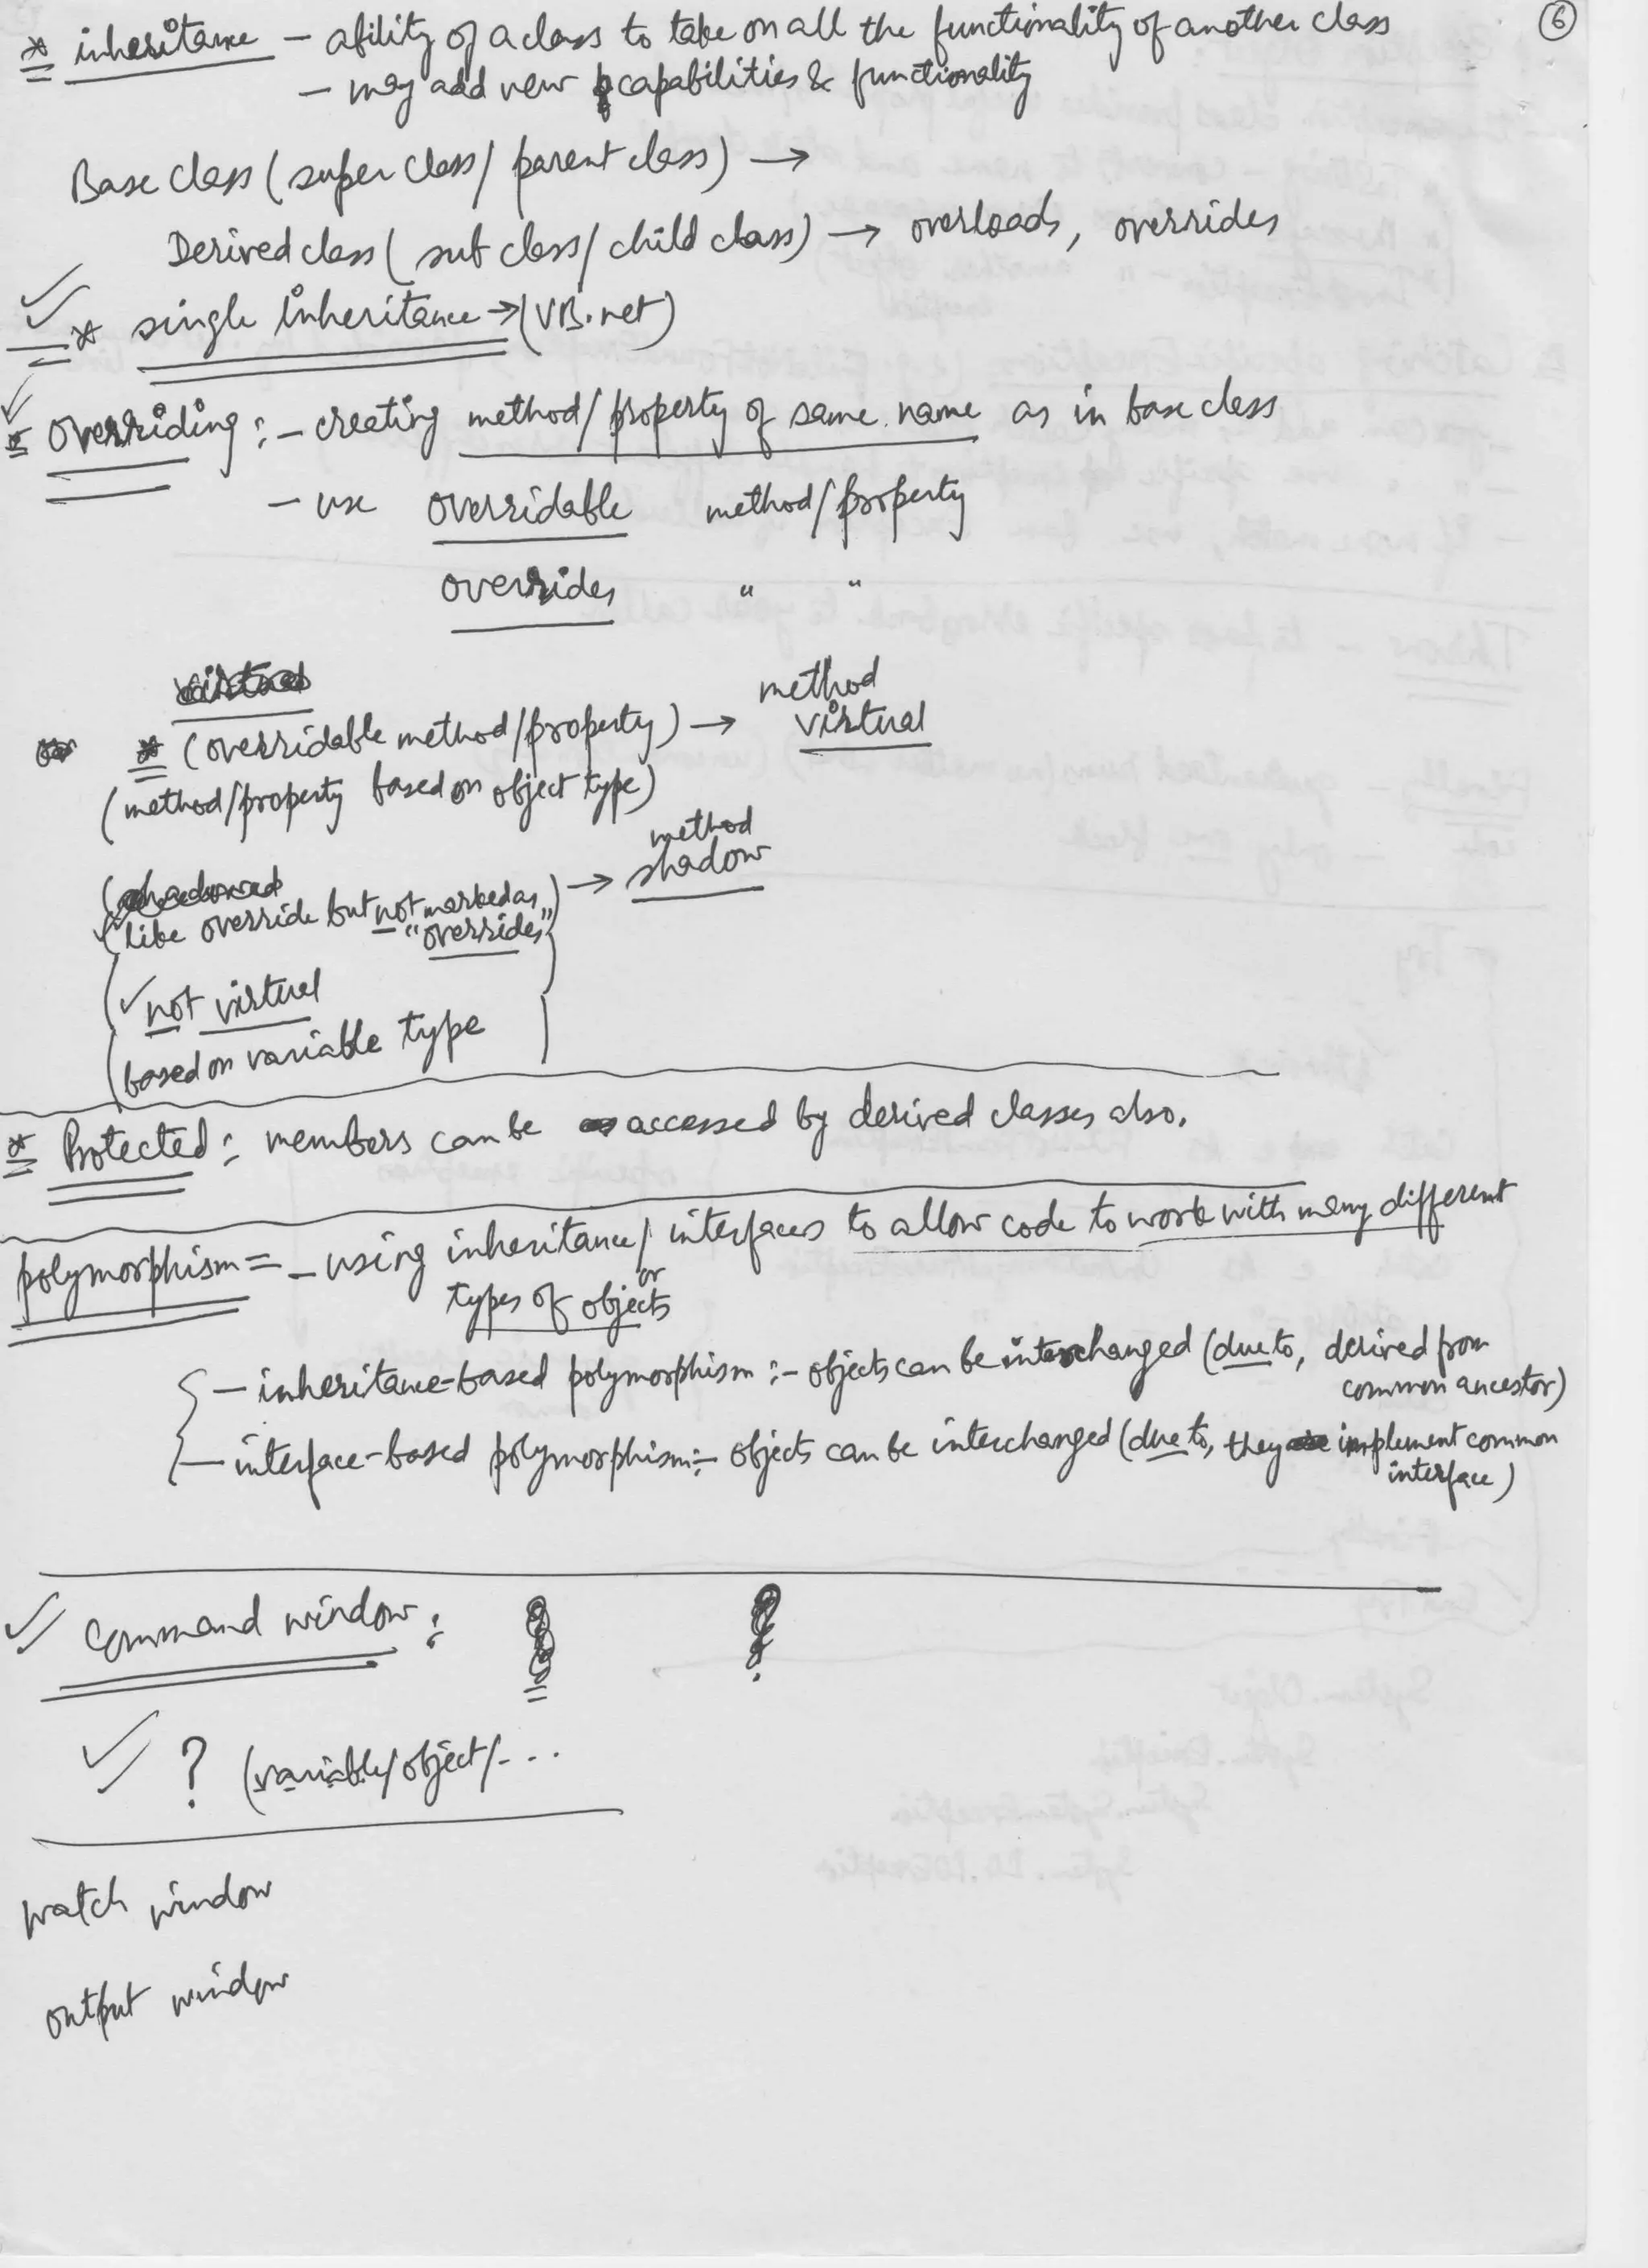 ⑥
* inheritance – ability of a class to take on all the functionality of another class
– may add new capabilities & functionality
Base class (super class/ parent class) →
Derived class ( sub class/ child class) → overloads, overrides
* single inheritance → (VB.net)
* overriding :- creating method/property of same name as in base class
– use overridable method/property
overrides " "
method
* (overridable method/property) → virtual
(method/property based on object type)
method
(like override but not marked as → shadow
"overrides"
✓ not virtual
(based on variable type
* Protected : members can be accessed by derived classes also.
polymorphism = – using inheritance/ interfaces to allow code to work with many different
or
types of objects
– inheritance-based polymorphism :- objects can be interchanged (due to, derived from
common ancestor)
– interface-based polymorphism :- objects can be interchanged (due to, they implement common
interface)
✓ Command window :
✓ ? (variable/object/- ...
watch window
output window